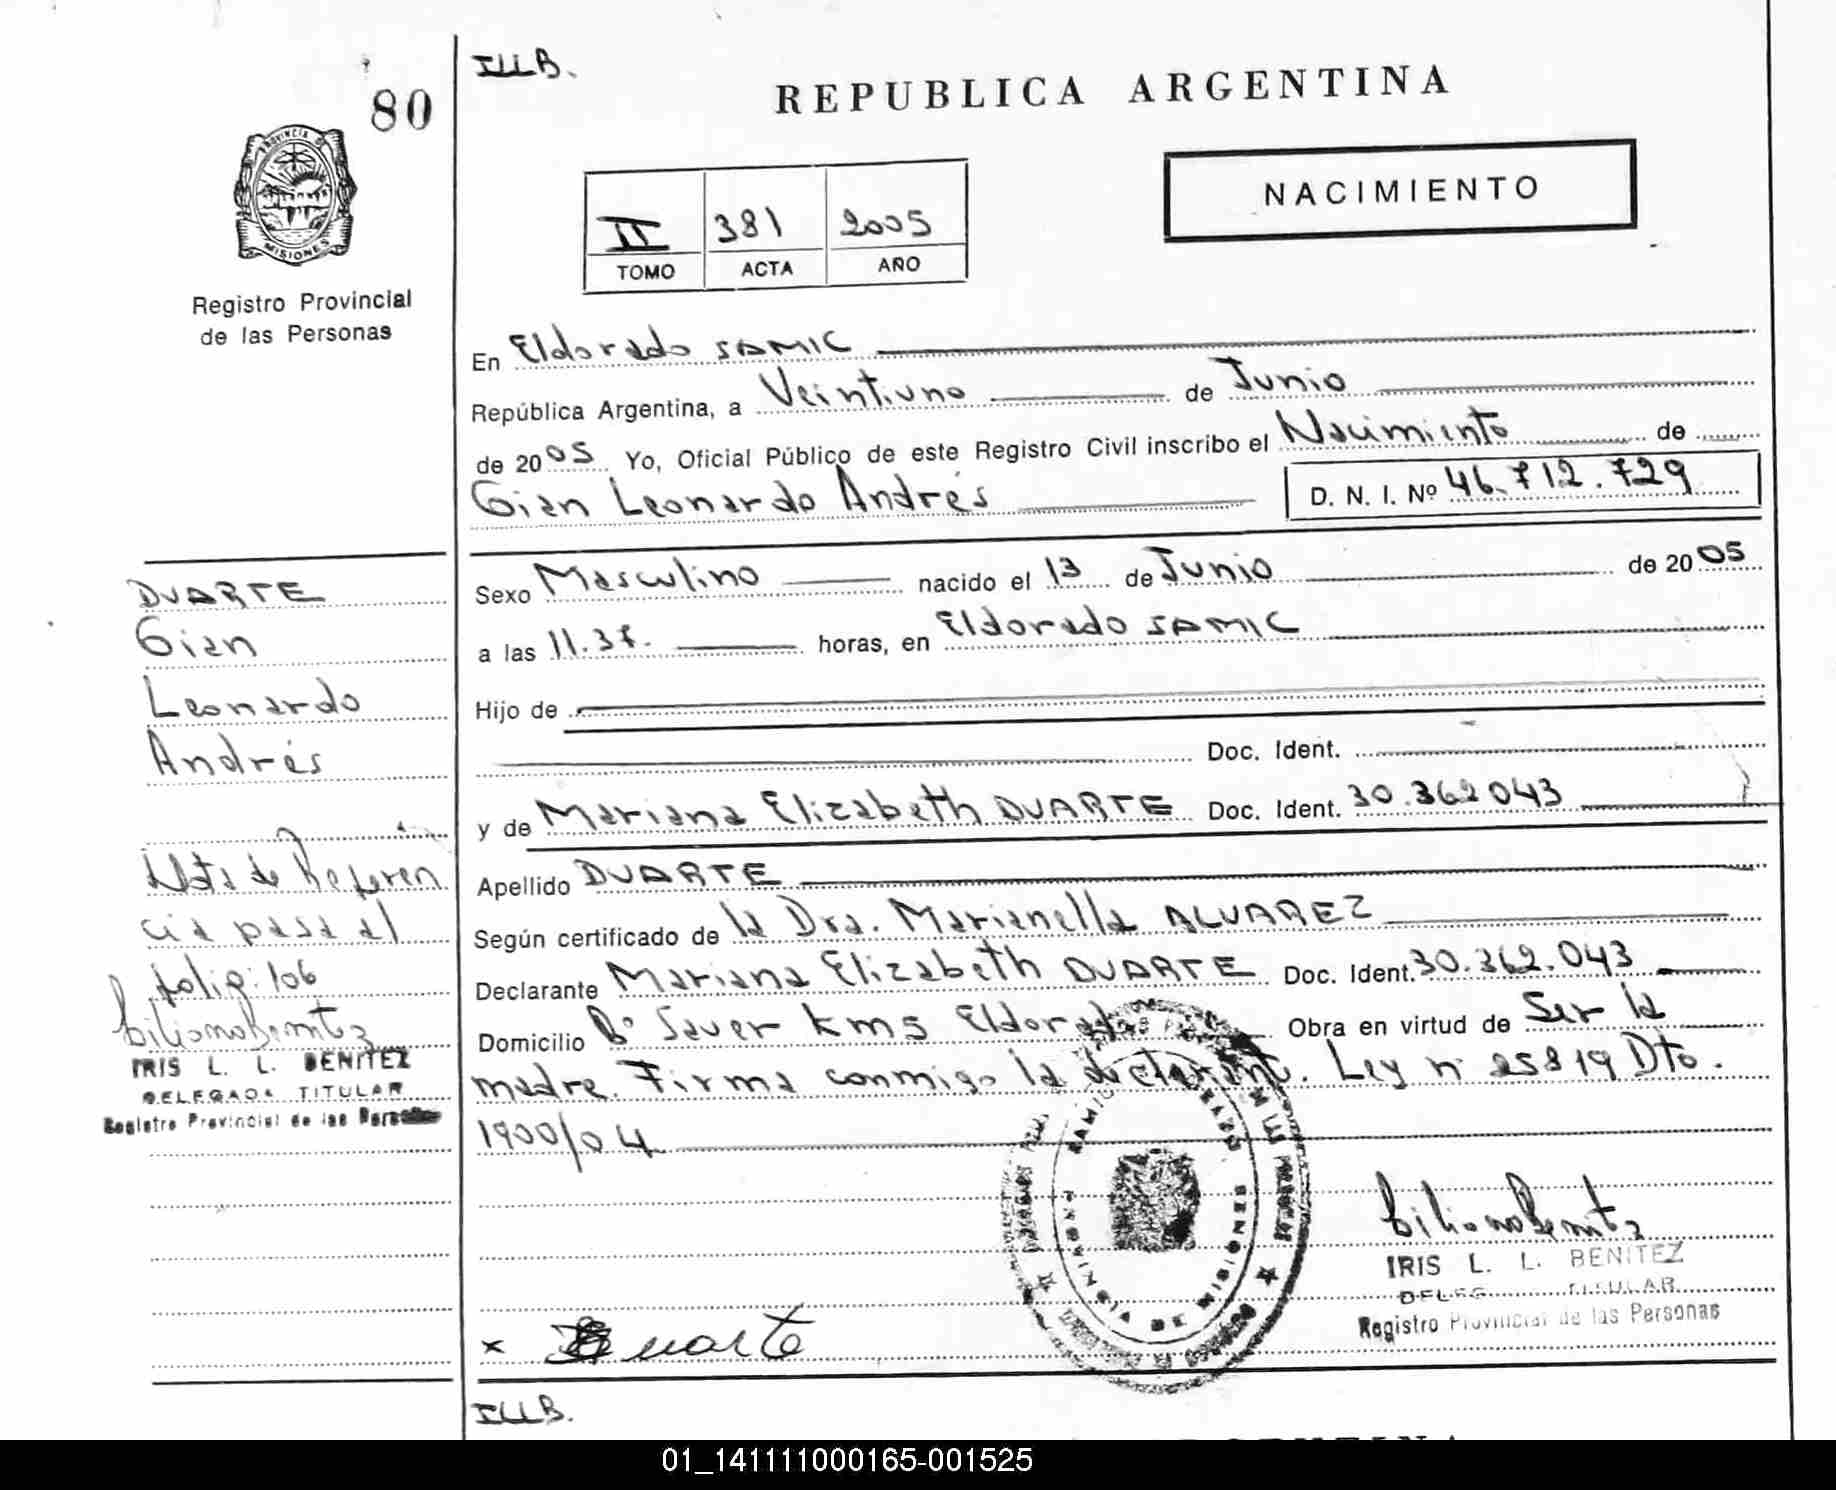 ILLB.
80
REPUBLICA ARGENTINA
PROVINCIA DE
MISIONES
NACIMIENTO
II 381 2005
TOMO ACTA AÑO
Registro Provincial
de las Personas
En Eldorado SAMIC
República Argentina, a Veintiuno de Junio
de 2005 Yo, Oficial Público de este Registro Civil inscribo el Nacimiento de
Gian Leonardo Andrés D. N. I. Nº 46.712.729
Sexo Masculino nacido el 13 de Junio de 2005
a las 11.37. horas, en Eldorado SAMIC
Hijo de
Doc. Ident.
y de Mariana Elizabeth DUARTE Doc. Ident. 30.362043
Apellido DUARTE
Según certificado de la Dra. Marianella ALVAREZ
Declarante Mariana Elizabeth DUARTE Doc. Ident. 30.362.043
Domicilio Bº Sauer km5 Eldorado Obra en virtud de Ser la
madre. Firma conmigo la declarante. Ley nº 25819 Dto.
1900/04
DUARTE
Gian
Leonardo
Andrés
Nota de Referen
cia pasa al
folio: 106
IRIS L. L. BENITEZ
DELEGADA TITULAR
Registro Provincial de las Personas
PROVINCIA DE MISIONES
IRIS L. L. BENITEZ
TITULAR
Registro Provincial de las Personas
x Duarte
ILLB.
01_141111000165-001525